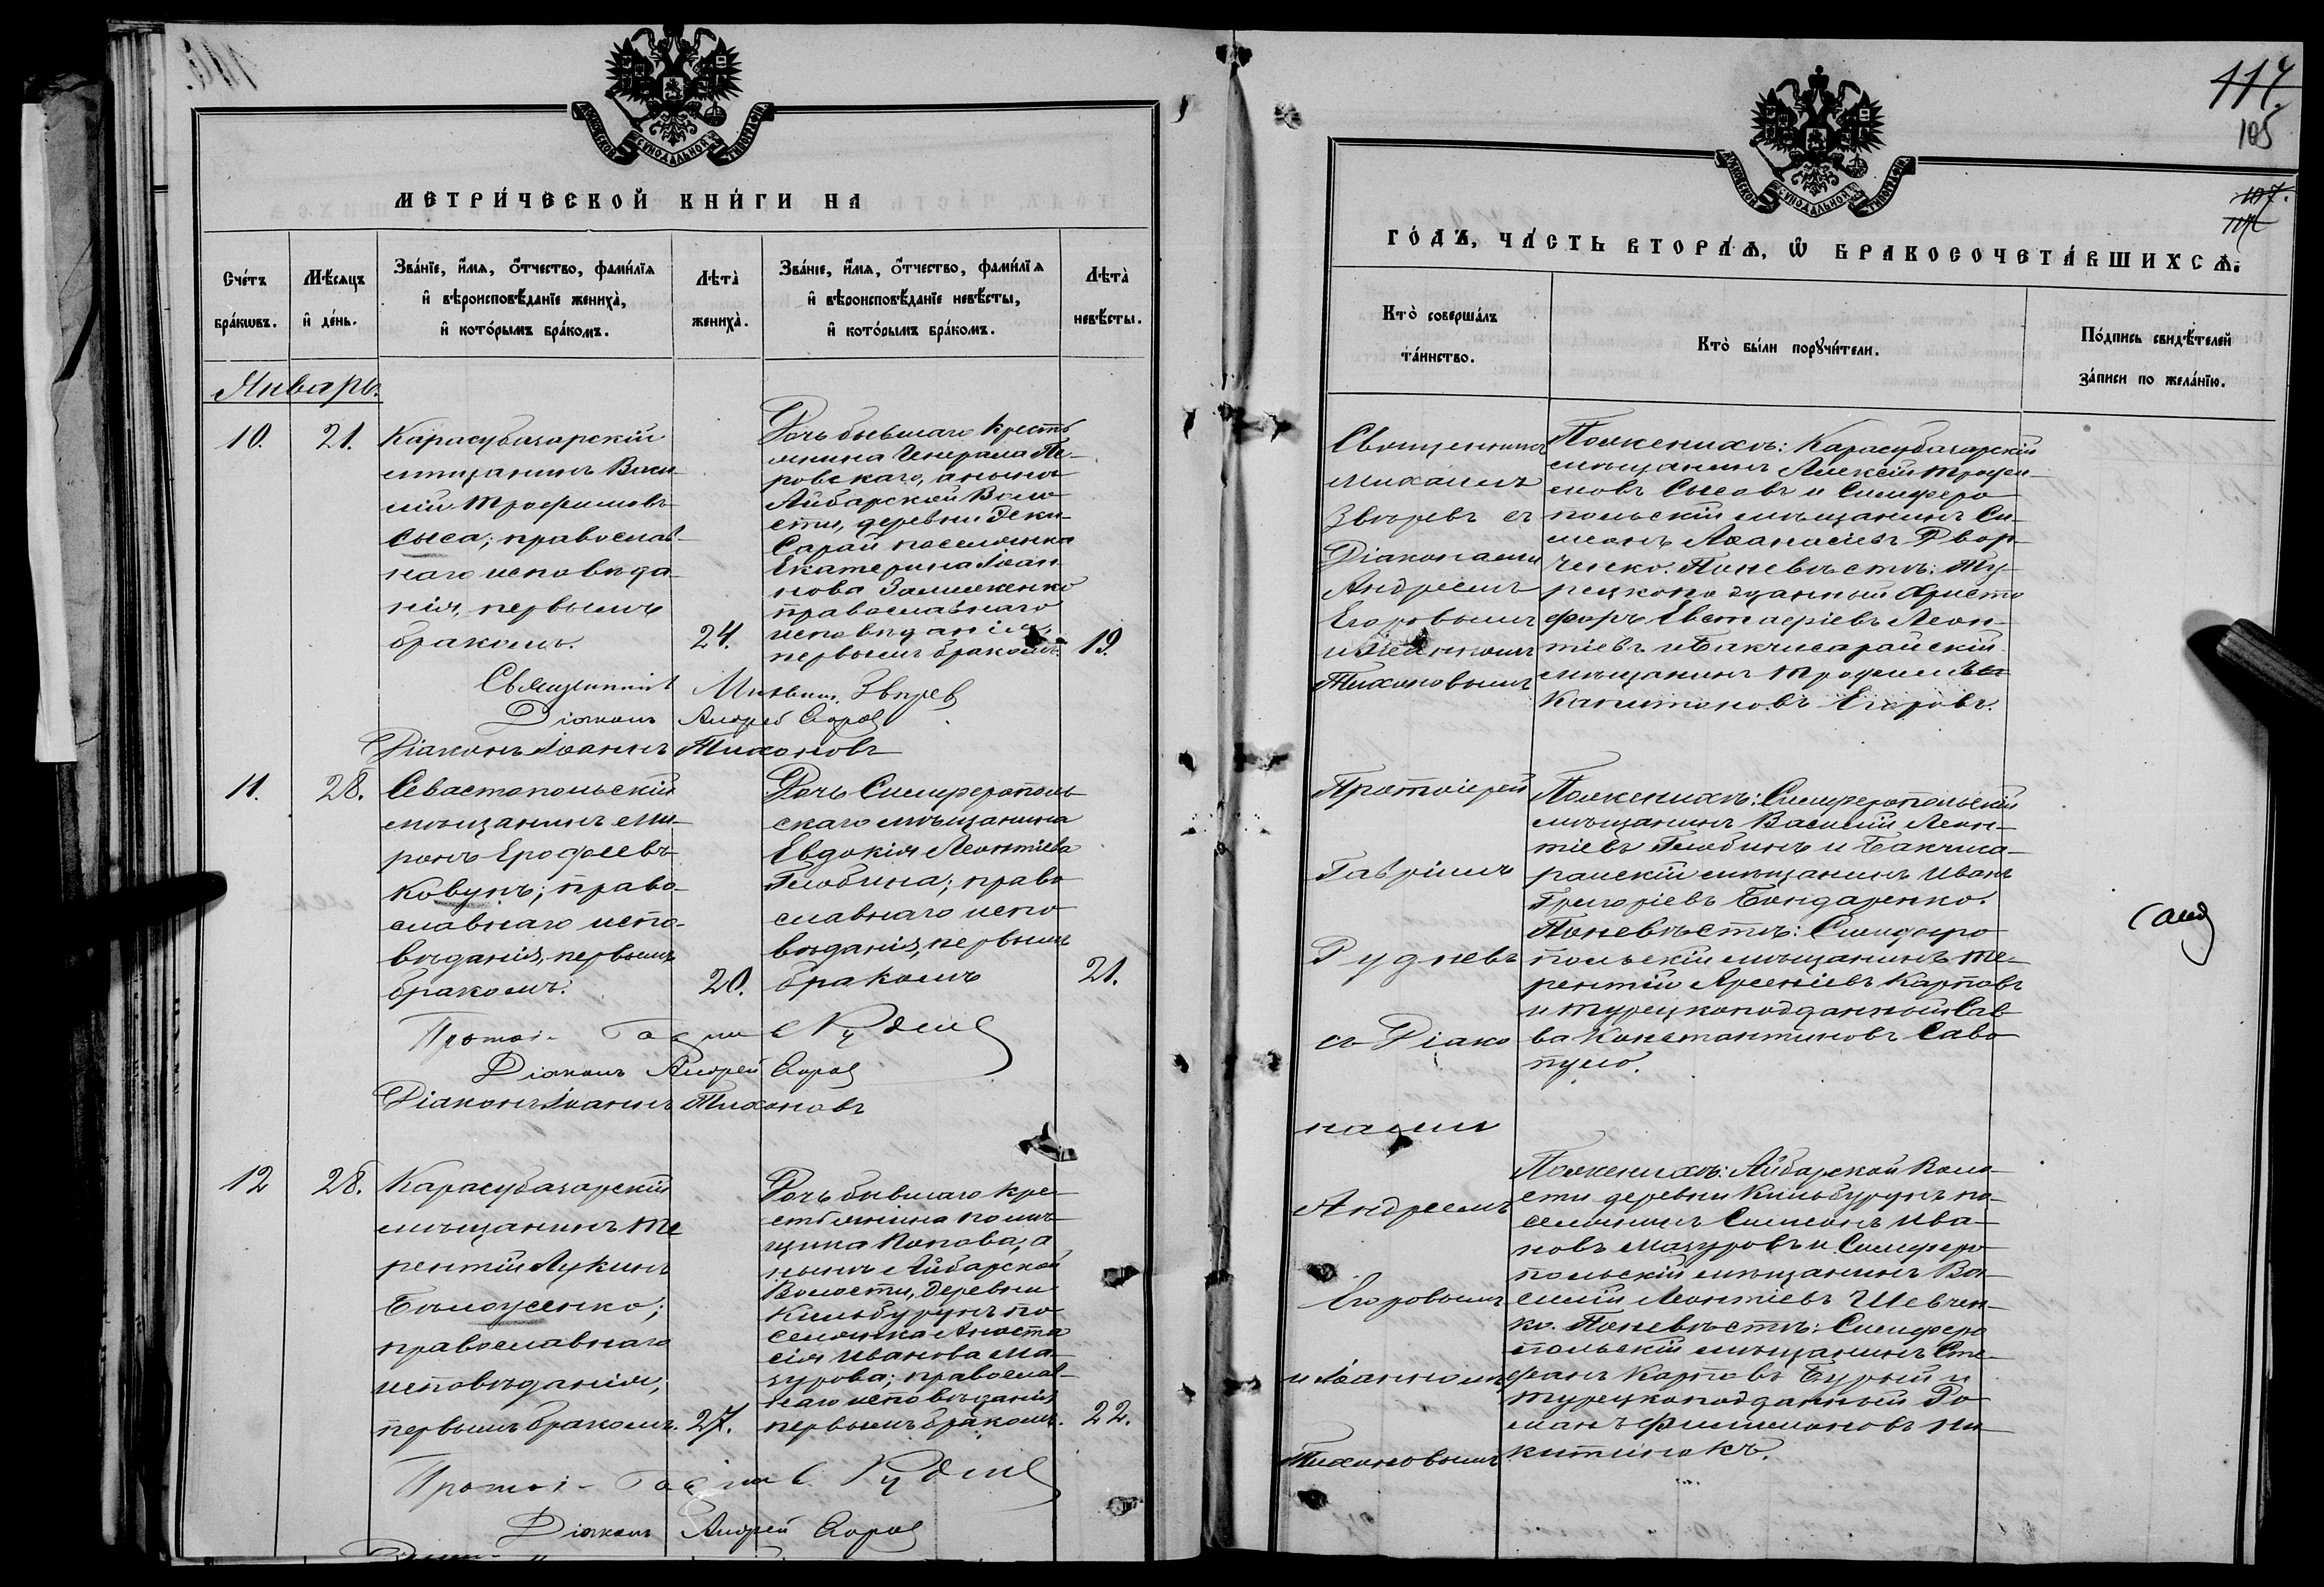 МЕТРИ́ЧЕСКОЙ КНИ́ГИ НА
Сче́тъ бра́кωвъ.
Мѣ́сяцъ и҆ де́нь.
Зва́нїе, и҆́мѧ, ѻ҆́тчество, фами́лїѧ
и҆ вѣроисповѣ́данїе жениха̀,
и҆ кото́рымъ бра́комъ.
Лѣта̀ жениха̀.
Зва́нїе, и҆́мѧ, ѻ҆́тчество, фами́лїѧ
и҆ вѣроисповѣ́данїе невѣ́сты,
и҆ кото́рымъ бра́комъ.
Лѣта̀ невѣ́сты.
Январь.
10.
21.
Карасубазарскій
мѣщанинъ Васи-
лій Трофимовъ
Сыса; православ-
наго исповѣда-
нія, первымъ
бракомъ.
24.
Дочь бывшаго кресть
янина Генерала Пе-
ровскаго, а нынѣ
Айбарской Воло-
сти, деревни Эски-
Сарай поселянка
Екатерина Іоан-
нова
православнаго
исповѣданія,
первымъ бракомъ.
19.
Священникъ Михаилъ Звѣревъ
Діаконъ Андрей Егоровъ
Діаконъ Іоаннъ Тихоновъ
11.
28.
Севастопольскій
мѣщанинъ Ми-
ронъ Ерофеевъ
Ковунъ; право-
славнаго испо-
вѣданія, первымъ
бракомъ.
20.
Дочь Симферополь
скаго мѣщанина
Евдокія Леонтіева
Глобина; право
славнаго испо
вѣданія, первымъ
бракомъ
21.
Протоі. Гавріилъ Рудневъ
Діаконъ Андрей Егоровъ
Діаконъ Іоаннъ Тихоновъ
12
28.
Карасубазарскій
мѣщанинъ Те
рентій Лукинъ
Бѣлоусенко;
православнаго
исповѣданія,
первымъ бракомъ.
27.
Дочь бывшаго кре-
стьянина помѣ-
щика Попова, а
нынѣ Айбарской
Волости, деревни
Кильбурунъ по
селянка Анаста
сія Иванова Ма-
зурова; православ-
наго исповѣданія
первымъ бракомъ.
22.
Протоі. Гавріилъ Рудневъ
Діаконъ Андрей Егоровъ
117.
105
107.
ГО́ДЪ, ЧА́СТЬ ВТОРА́Ѧ, Ѽ БРАКОСОЧЕТА́ВШИХСѦ:
Кто̀ соверша́лъ
та́инство.
Кто̀ бы́ли порꙋчи́тели.
По́дпись свидѣ́телей
за́писи по жела́нїю.
Священникъ
Михаилъ
Звѣревъ съ
Діаконами
Андреемъ
Егоровымъ
и Іоанномъ
Тихоновымъ
По женихѣ: Карасубазарскій
мѣщанинъ Алексѣй Трофи-
мовъ Сысовъ и Симферо
польскій мѣщанинъ Си-
меонъ Аѳанасіевъ Двор-
ченко. По невѣстѣ: Ту-
рецкоподданный Христо
форъ Евстафіевъ Леон-
тіевъ и Бакчисарайскій
мѣщанинъ Трофимъ
Капитоновъ Егоровъ.
Протоіерей
Гавріилъ
Рудневъ
съ Діако
нами
Андреемъ
Егоровымъ
и Іоанномъ
Тихоновымъ
По женихѣ: Симферопольскій
мѣщанинъ Василій Леон-
тіевъ Глобинъ и Бакчиса-
райскій мѣщанинъ Иванъ
Григоріевъ Бондаренко.
По невѣстѣ: Симферо
польскій мѣщанинъ Те-
рентій Арсеніевъ Карповъ
и Турецкоподданный Сав
ва Константиновъ Саво
пуло.
По женихѣ: Айбарской Воло
сти деревни Кильбурунъ по-
селянинъ Симеонъ Ива-
новъ Мазуровъ и Симферо
польскій мѣщанинъ Ва-
силій Леонтіевъ Шевчен-
ко. По невѣстѣ: Симферо
польскій мѣщанинъ Сте-
фанъ Карповъ Бурый и
Турецкоподданный До
міанъ Филимоновъ Ни
китинокъ.